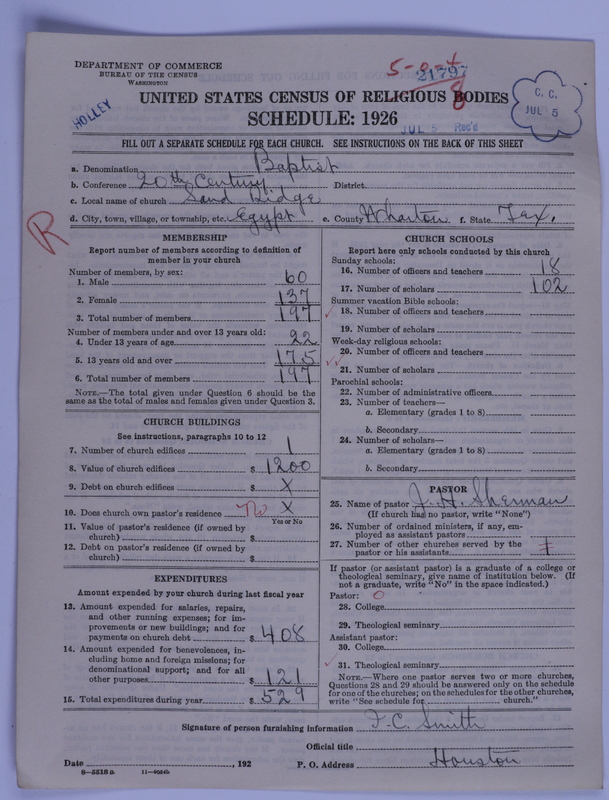 DEPARTMENT OF COMMERCE
BUREAU OF THE CENSUS
WASHINGTON
5-8-4
21797
8
HOLLEY
C. C.
JUL 5
UNITED STATES CENSUS OF RELIGIOUS BODIES
SCHEDULE: 1926
JUL 5 Rec'd
FILL OUT A SEPARATE SCHEDULE FOR EACH CHURCH. SEE INSTRUCTIONS ON THE BACK OF THIS SHEET
a. Denomination Baptist
b. Conference 20th Century District
c. Local name of church Sand Ridge
d. City, town, village, or township, etc. Egypt e. County Wharton f. State Tex.
R
MEMBERSHIP
Report number of members according to definition of
member in your church
Number of members, by sex:
1. Male 60
2. Female 137
3. Total number of members 197
Number of members under and over 13 years old:
4. Under 13 years of age 22
5. 13 years old and over 175
6. Total number of members 197
NOTE.—The total given under Question 6 should be
same as the total of males and females given under Question 3.
CHURCH BUILDINGS
See instructions, paragraphs 10 to 12
7. Number of church edifices 1
8. Value of church edifices $ 1200
9. Debt on church edifices $ X
10. Does church own pastor's residence No X
Yes or No
11. Value of pastor's residence (if owned by
church) $
12. Debt on pastor's residence (if owned by
church) $
EXPENDITURES
Amount expended by your church during last fiscal year
13. Amount expended for salaries, repairs,
and other running expenses; for im-
provements or new buildings; and for
payments on church debt $ 408
14. Amount expended for benevolences, in-
cluding home and foreign missions; for
denominational support; and for all
other purposes $ 121
15. Total expenditures during year $ 529
CHURCH SCHOOLS
Report here only schools conducted by this church
Sunday schools:
16. Number of officers and teachers 18
17. Number of scholars 102
Summer vacation Bible schools:
18. Number of officers and teachers
19. Number of scholars
Week-day religious schools:
20. Number of officers and teachers
21. Number of scholars
Parochial schools:
22. Number of administrative officers
23. Number of teachers—
a. Elementary (grades 1 to 8)
b. Secondary
24. Number of scholars—
a. Elementary (grades 1 to 8)
b. Secondary
PASTOR
25. Name of pastor J. H. Sherman
(If church has no pastor, write "None")
26. Number of ordained ministers, if any, em-
ployed as assistant pastors
27. Number of other churches served by the
pastor or his assistants
If pastor (or assistant pastor) is a graduate of a college or
theological seminary, give name of institution below. (If
not a graduate, write "No" in the space indicated.)
Pastor: O
28. College
29. Theological seminary
Assistant pastor:
30. College
31. Theological seminary
NOTE.—Where one pastor serves two or more churches,
Questions 28 and 29 should be answered only on the schedule
for one of the churches; on the schedules for the other churches,
write "See schedule for church."
Signature of person furnishing information F. C. Smith
Official title
Date , 192 P. O. Address Houston
8—5518 a 11—9034b